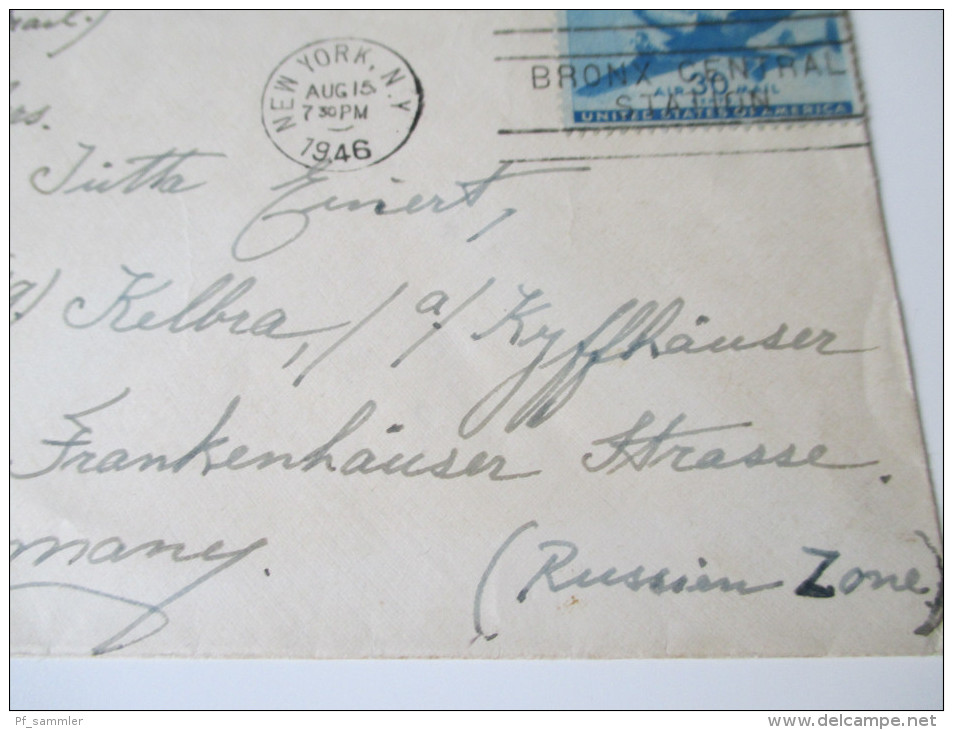 NEW YORK, N.Y.
AUG 15
7 30 PM
1946
BRONX CENTRAL
STATION
30
AIR MAIL
UNITED STATES OF AMERICA
Jutta Einert,
a/ Kelbra, / a/ Kyffhäuser
Frankenhäuser Strasse.
many.
(Russien Zone)
Pf_sammler
www.delcampe.net